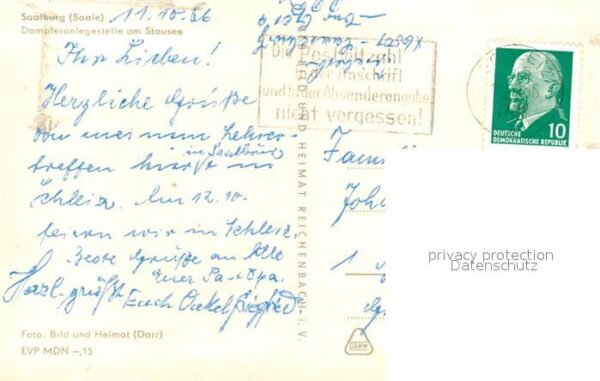 Saalburg (Saale)
Dampferanlegestelle am Stausee
11.10.66
Ihr Lieben!
Herzliche Grüße
von meinem Lehrer-
treffen hier in
in Saalburg
Schleiz. Am 12.10.
feiern wir in Schleiz.
Beste Grüße an Alle
Euer Pa-Opa.
Herzl. grüßt Euch Onkel Siegfried
Foto: Bild und Heimat (Darr)
EVP MDN –,15
BILD UND HEIMAT REICHENBACH i. V.
Die Postleitzahl
in der Anschrift
und in der Absenderangabe
nicht vergessen!
DEUTSCHE
DEMOKRATISCHE REPUBLIK
10
privacy protection
Datenschutz